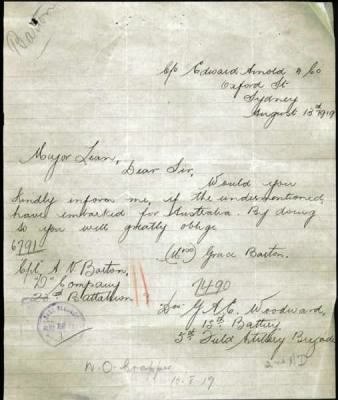 Barton
C/o Edward Arnold & Co
Oxford St
Sydney
August 13th 1919
Major Lean,
Dear Sir,
Would you
kindly inform me, if the undermentioned,
have embarked for Australia. By doing
so you will greatly oblige
(Mrs) Grace Barton.
6791
Cpl. A. V. Barton,
"D" Company
Battalion
7490
Dvr. G. A. C. Woodward,
13th Battery
5th Field Artillery Brigade
2nd MD